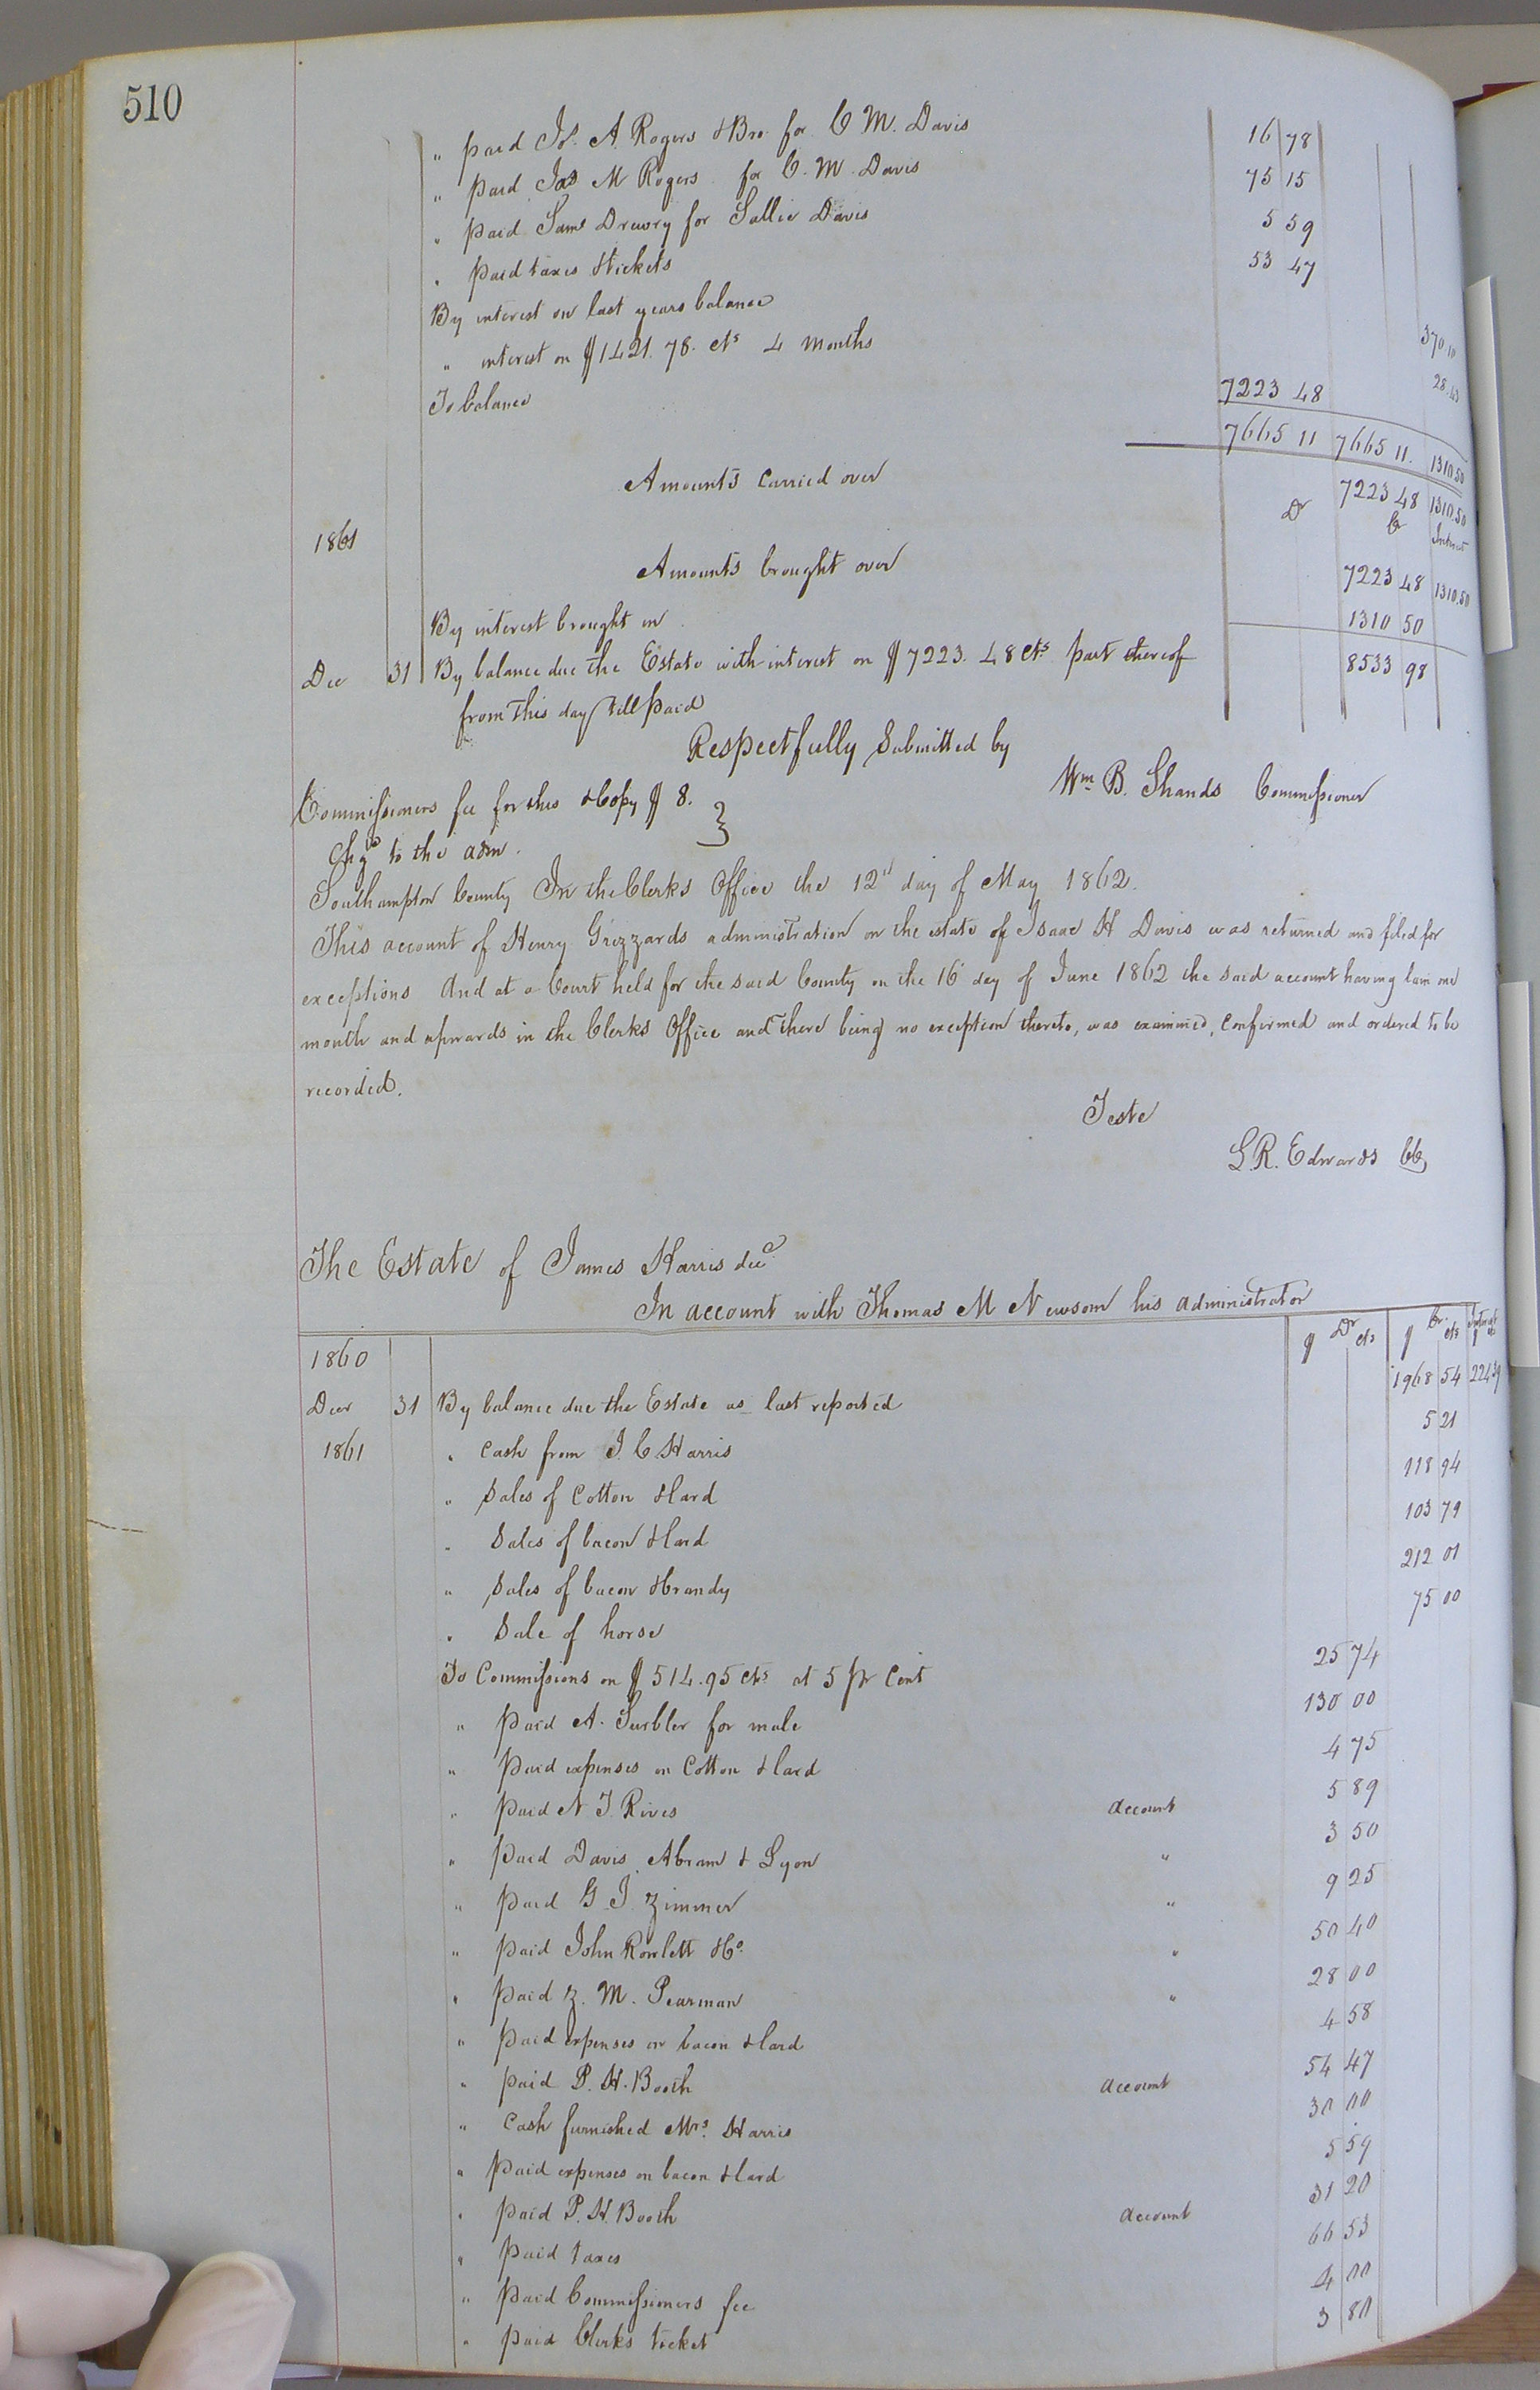 510
" paid Jos. A. Rogers & Bro. for C. M. Davis 16 78
" paid Jas M Rogers for C. M. Davis 75 15
" paid Saml Drewry for Sallie Davis 5 59
" paid taxes & tickets 53 47
By interest on last years balance 370 10
" interest on $1421. 78. cts 4 months 28.43
To balance 7223 48
7665 11 7665 11. 1310.50
Amounts carried over 7223 48 1310.50
1861 Dr Cr Interest
Amounts brought over 7223 48 1310.50
By interest brought in 1310 50
Dec 31 By balance due the Estate with interest on $7223. 48 cts part thereof 8533 98
from this day till paid
Respectfully Submitted by
Wm B. Shands Commissioner
Commissioners fee for this & Copy $ 8. }
Chgd to the adm.
Southampton County In the Clerks Office the 12th day of May 1862.
This account of Henry Grizzards administration on the estate of Isaac H Davis was returned and filed for
exceptions And at a Court held for the said County on the 16 day of June 1862 the said account having lain one
month and upwards in the Clerks Office and there being no exception thereto, was examined, confirmed and ordered to be
recorded.
Teste
L.R. Edwards CC,
The Estate of James Harris decd
In account with Thomas M Newsom his administrator
1860 $ Dr cts $ Cr. cts Interest $ cts
Decr 31 By balance due the Estate as last reported 1968 54 224 39
1861 " Cash from J. C Harris 5 21
" Sales of Cotton & lard 118 94
" Sales of bacon & lard 103 79
" Sales of bacon & brandy 212 01
" Sale of horse 75 00
To Commissions on $514.95 cts at 5 pr Cent 25 74
" paid A. for mule 130 00
" paid expenses on Cotton & lard 4 75
" paid N T. Rives account 5 89
" paid Davis Abram & Lyon " 3 50
" paid G J. Zimmer " 9 25
" paid John Rowlett & Co. " 50 40
" paid Z. M. Pearman " 28 00
" paid expenses on bacon & lard 4 58
" paid P. H. Booth account 54 47
" Cash furnished Mrs. Harris 30 00
" paid expenses on bacon & lard 5 59
" paid P. H. Booth account 31 20
" paid taxes 66 53
" paid Commissioners fee 4 00
" paid Clerks ticket 3 80